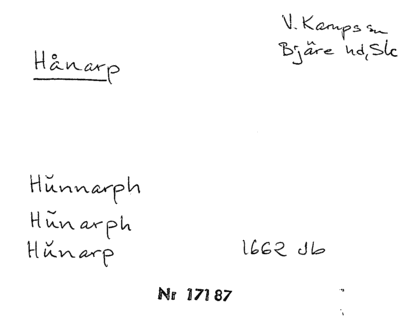 V. Karups sn
Bjäre hd, Sk
Hånarp
Hŭnnarph
Hŭnarph
Hŭnarp 1662 Jb
Nr 17187